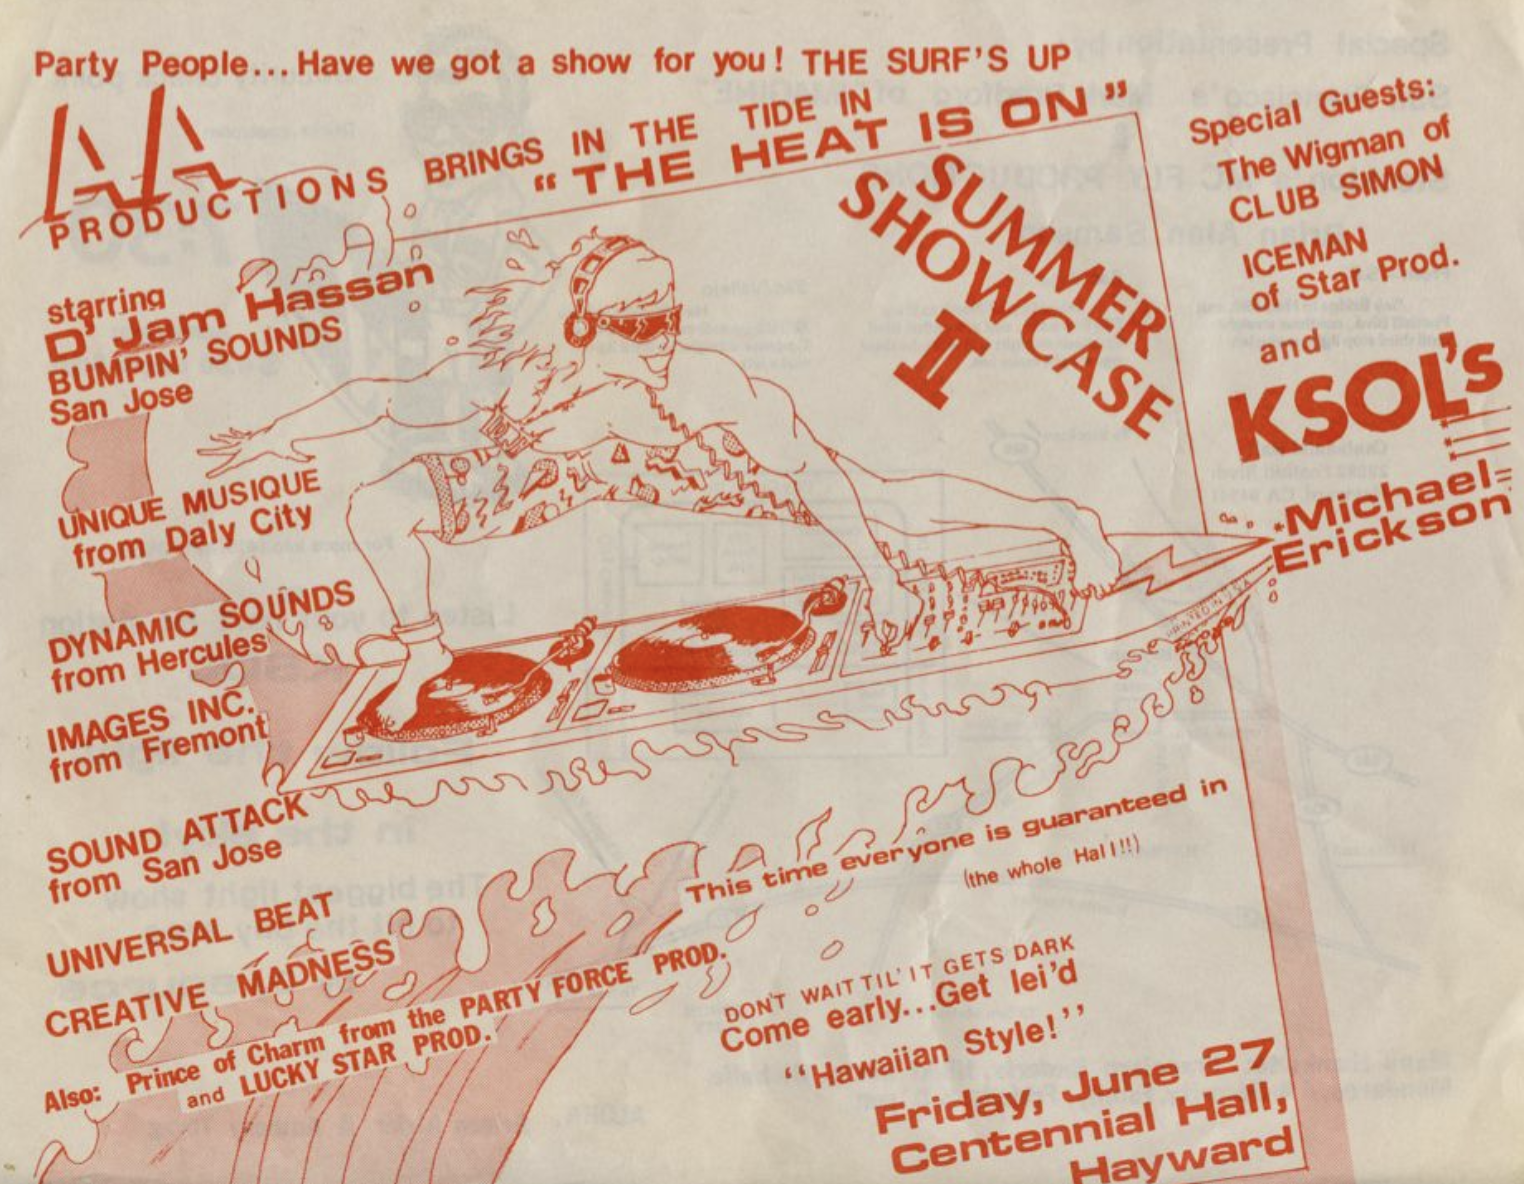 Party People... Have we got a show for you! THE SURF'S UP
AA
PRODUCTIONS BRINGS IN THE TIDE IN
"THE HEAT IS ON"
SUMMER
SHOWCASE
II
starring
D' Jam Hassan
BUMPIN' SOUNDS
San Jose
UNIQUE MUSIQUE
from Daly City
DYNAMIC SOUNDS
from Hercules
IMAGES INC.
from Fremont
SOUND ATTACK
from San Jose
UNIVERSAL BEAT
CREATIVE MADNESS
Also: Prince of Charm from the PARTY FORCE PROD.
and LUCKY STAR PROD.
Special Guests:
The Wigman of
CLUB SIMON
ICEMAN
of Star Prod.
and
KSOL's
Michael
Erickson
This time everyone is guaranteed in
(the whole Hall!!)
DON'T WAIT TIL' IT GETS DARK
Come early...Get lei'd
"Hawaiian Style!"
Friday, June 27
Centennial Hall,
Hayward